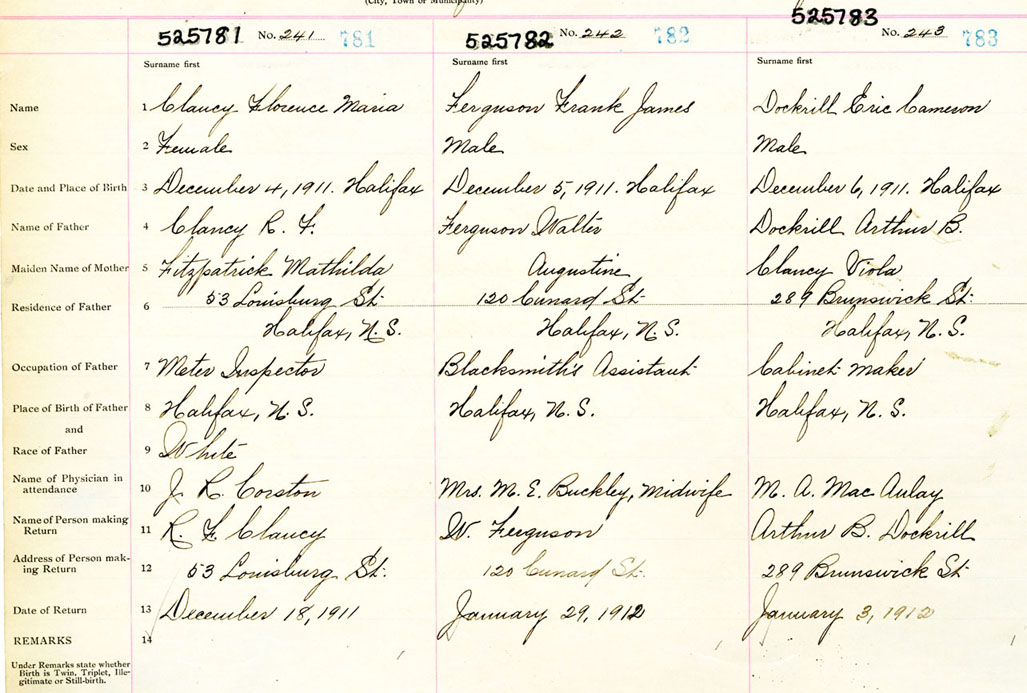 (City, Town or Municipality)
525781 No. 241 781 525782 No. 242 782 525783 No. 243 783
Surname first Surname first Surname first
Name 1 Clancy Florence Maria Ferguson Frank James Dockrill Eric Cameron
Sex 2 Female Male Male
Date and Place of Birth 3 December 4, 1911. Halifax December 5, 1911. Halifax December 6, 1911. Halifax
Name of Father 4 Clancy R. F. Ferguson Walter Dockrill Arthur B.
Maiden Name of Mother 5 Fitzpatrick Mathilda Augustine Clancy Viola
Residence of Father 6 53 Louisburg St. 120 Cunard St. 289 Brunswick St.
Halifax, N.S. Halifax, N.S. Halifax, N.S.
Occupation of Father 7 Meter Inspector Blacksmith's Assistant Cabinet maker
Place of Birth of Father 8 Halifax, N.S. Halifax, N.S. Halifax, N.S.
and
Race of Father 9 White
Name of Physician in attendance 10 J. R. Corston Mrs. M. E. Buckley, Midwife M. A. MacAulay
Name of Person making Return 11 R. F. Clancy W. Ferguson Arthur B. Dockrill
Address of Person mak-
ing Return 12 53 Louisburg St. 120 Cunard St. 289 Brunswick St
Date of Return 13 December 18, 1911 January 29, 1912 January 3, 1912
REMARKS 14
Under Remarks state whether
Birth is Twin, Triplet, Ille-
gitimate or Still-birth.